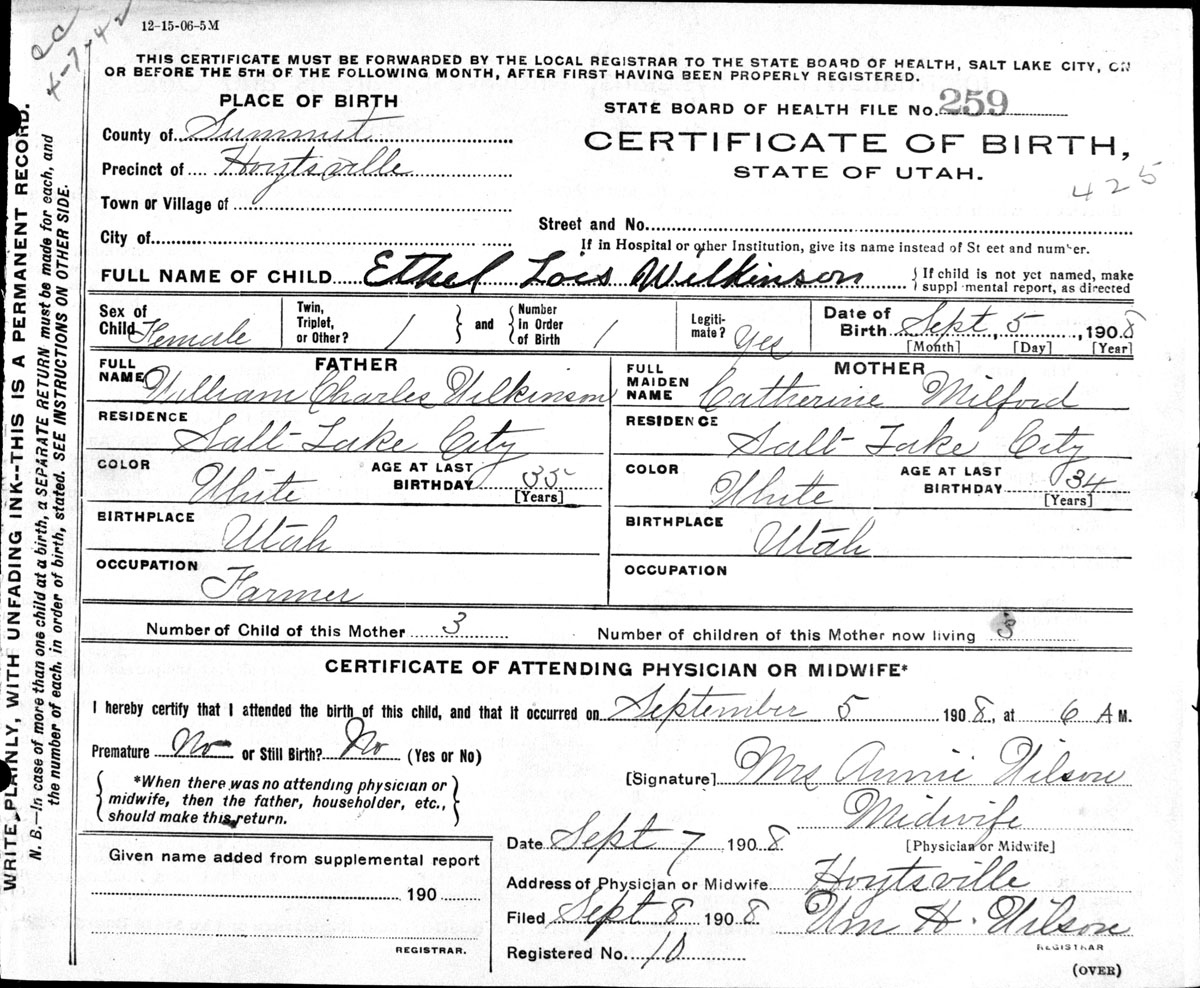 12-15-06-5M
4-7-42
THIS CERTIFICATE MUST BE FORWARDED BY THE LOCAL REGISTRAR TO THE STATE BOARD OF HEALTH, SALT LAKE CITY, ON
OR BEFORE THE 5TH OF THE FOLLOWING MONTH, AFTER FIRST HAVING BEEN PROPERLY REGISTERED.
PLACE OF BIRTH
STATE BOARD OF HEALTH FILE No. 259
County of Summit
CERTIFICATE OF BIRTH,
Precinct of Hoytsville
STATE OF UTAH.
425
Town or Village of
Street and No.
City of
If in Hospital or other Institution, give its name instead of St eet and number.
FULL NAME OF CHILD Ethel Lois Wilkinson
{ If child is not yet named, make
suppl mental report, as directed
Sex of Child Female
Twin, Triplet, or Other? 1 } and { Number in Order of Birth 1
Legiti-mate? Yes
Date of Birth Sept 5, 1908
[Month] [Day] [Year]
FATHER
MOTHER
FULL NAME William Charles Wilkinson
FULL MAIDEN NAME Catherine Milford
RESIDENCE Salt Lake City
RESIDENCE Salt Lake City
COLOR White AGE AT LAST BIRTHDAY 35 [Years]
COLOR White AGE AT LAST BIRTHDAY 34 [Years]
BIRTHPLACE Utah
BIRTHPLACE Utah
OCCUPATION Farmer
OCCUPATION
Number of Child of this Mother 3
Number of children of this Mother now living 3
CERTIFICATE OF ATTENDING PHYSICIAN OR MIDWIFE*
I hereby certify that I attended the birth of this child, and that it occurred on September 5 1908, at 6 A M.
Premature No or Still Birth? No (Yes or No)
[Signature] Mrs Annie Wilson
{ *When there was no attending physician or
midwife, then the father, householder, etc.,
should make this return. }
Midwife
[Physician or Midwife]
Date Sept 7 1908
Given name added from supplemental report
190
REGISTRAR.
Address of Physician or Midwife Hoytsville
Filed Sept 8 1908 Wm H. Wilson
REGISTRAR
Registered No. 10
(OVER)
WRITE PLAINLY, WITH UNFADING INK--THIS IS A PERMANENT RECORD.
N. B.—In case of more than one child at a birth, a SEPARATE RETURN must be made for each, and
the number of each, in order of birth, stated. SEE INSTRUCTIONS ON OTHER SIDE.